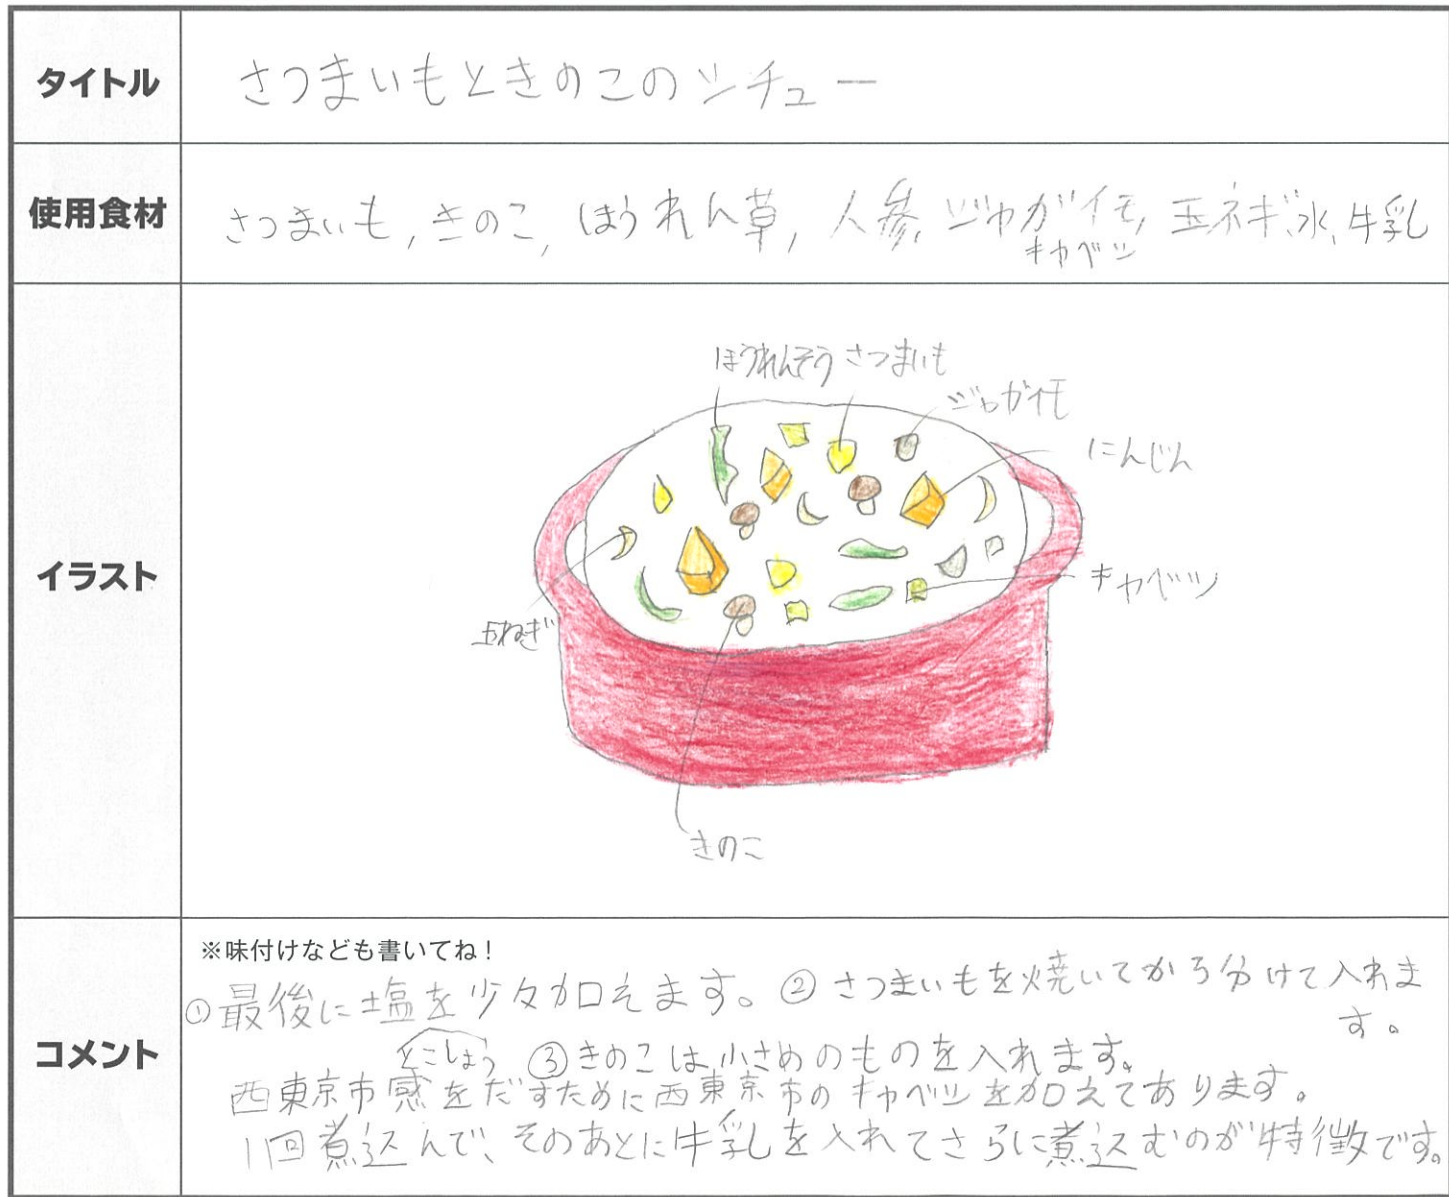 タイトル
さつまいもときのこのシチュー
使用食材
さつまいも,きのこ,ほうれん草,人参,ジャガイモ,玉ネギ、水、牛乳
キャベツ
イラスト
ほうれんそう さつまいも
ジャガイモ
にんじん
キャベツ
玉ねぎ
きのこ
コメント
※味付けなども書いてね!
①最後に塩を少々加えます。②さつまいもを焼いてから分けて入れま
す。
とこしょう ③きのこは小さめのものを入れます。
西東京市感をだすために西東京市のキャベツを加えてあります。
1回煮込んで、そのあとに牛乳を入れてさらに煮込むのが特徴です。